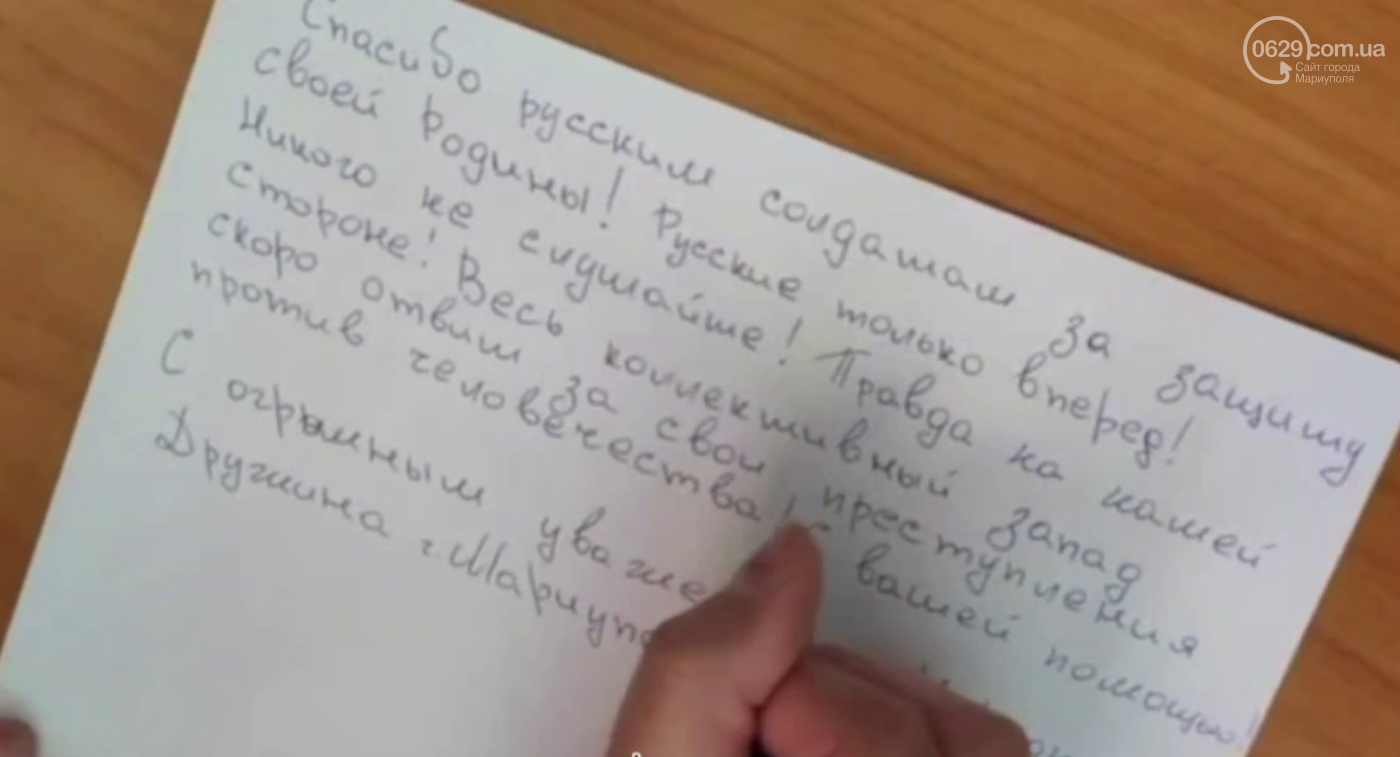 0629.com.ua
Сайт города
Мариуполя
Спасибо русским солдатам за защиту
своей Родины! Русские только вперед!
Никого не слушайте! Правда на нашей
стороне! Весь коллективный запад
скоро отвит за свои преступления
против человечества! С вашей помощью!
С уваже
Дружина г. Мариупо